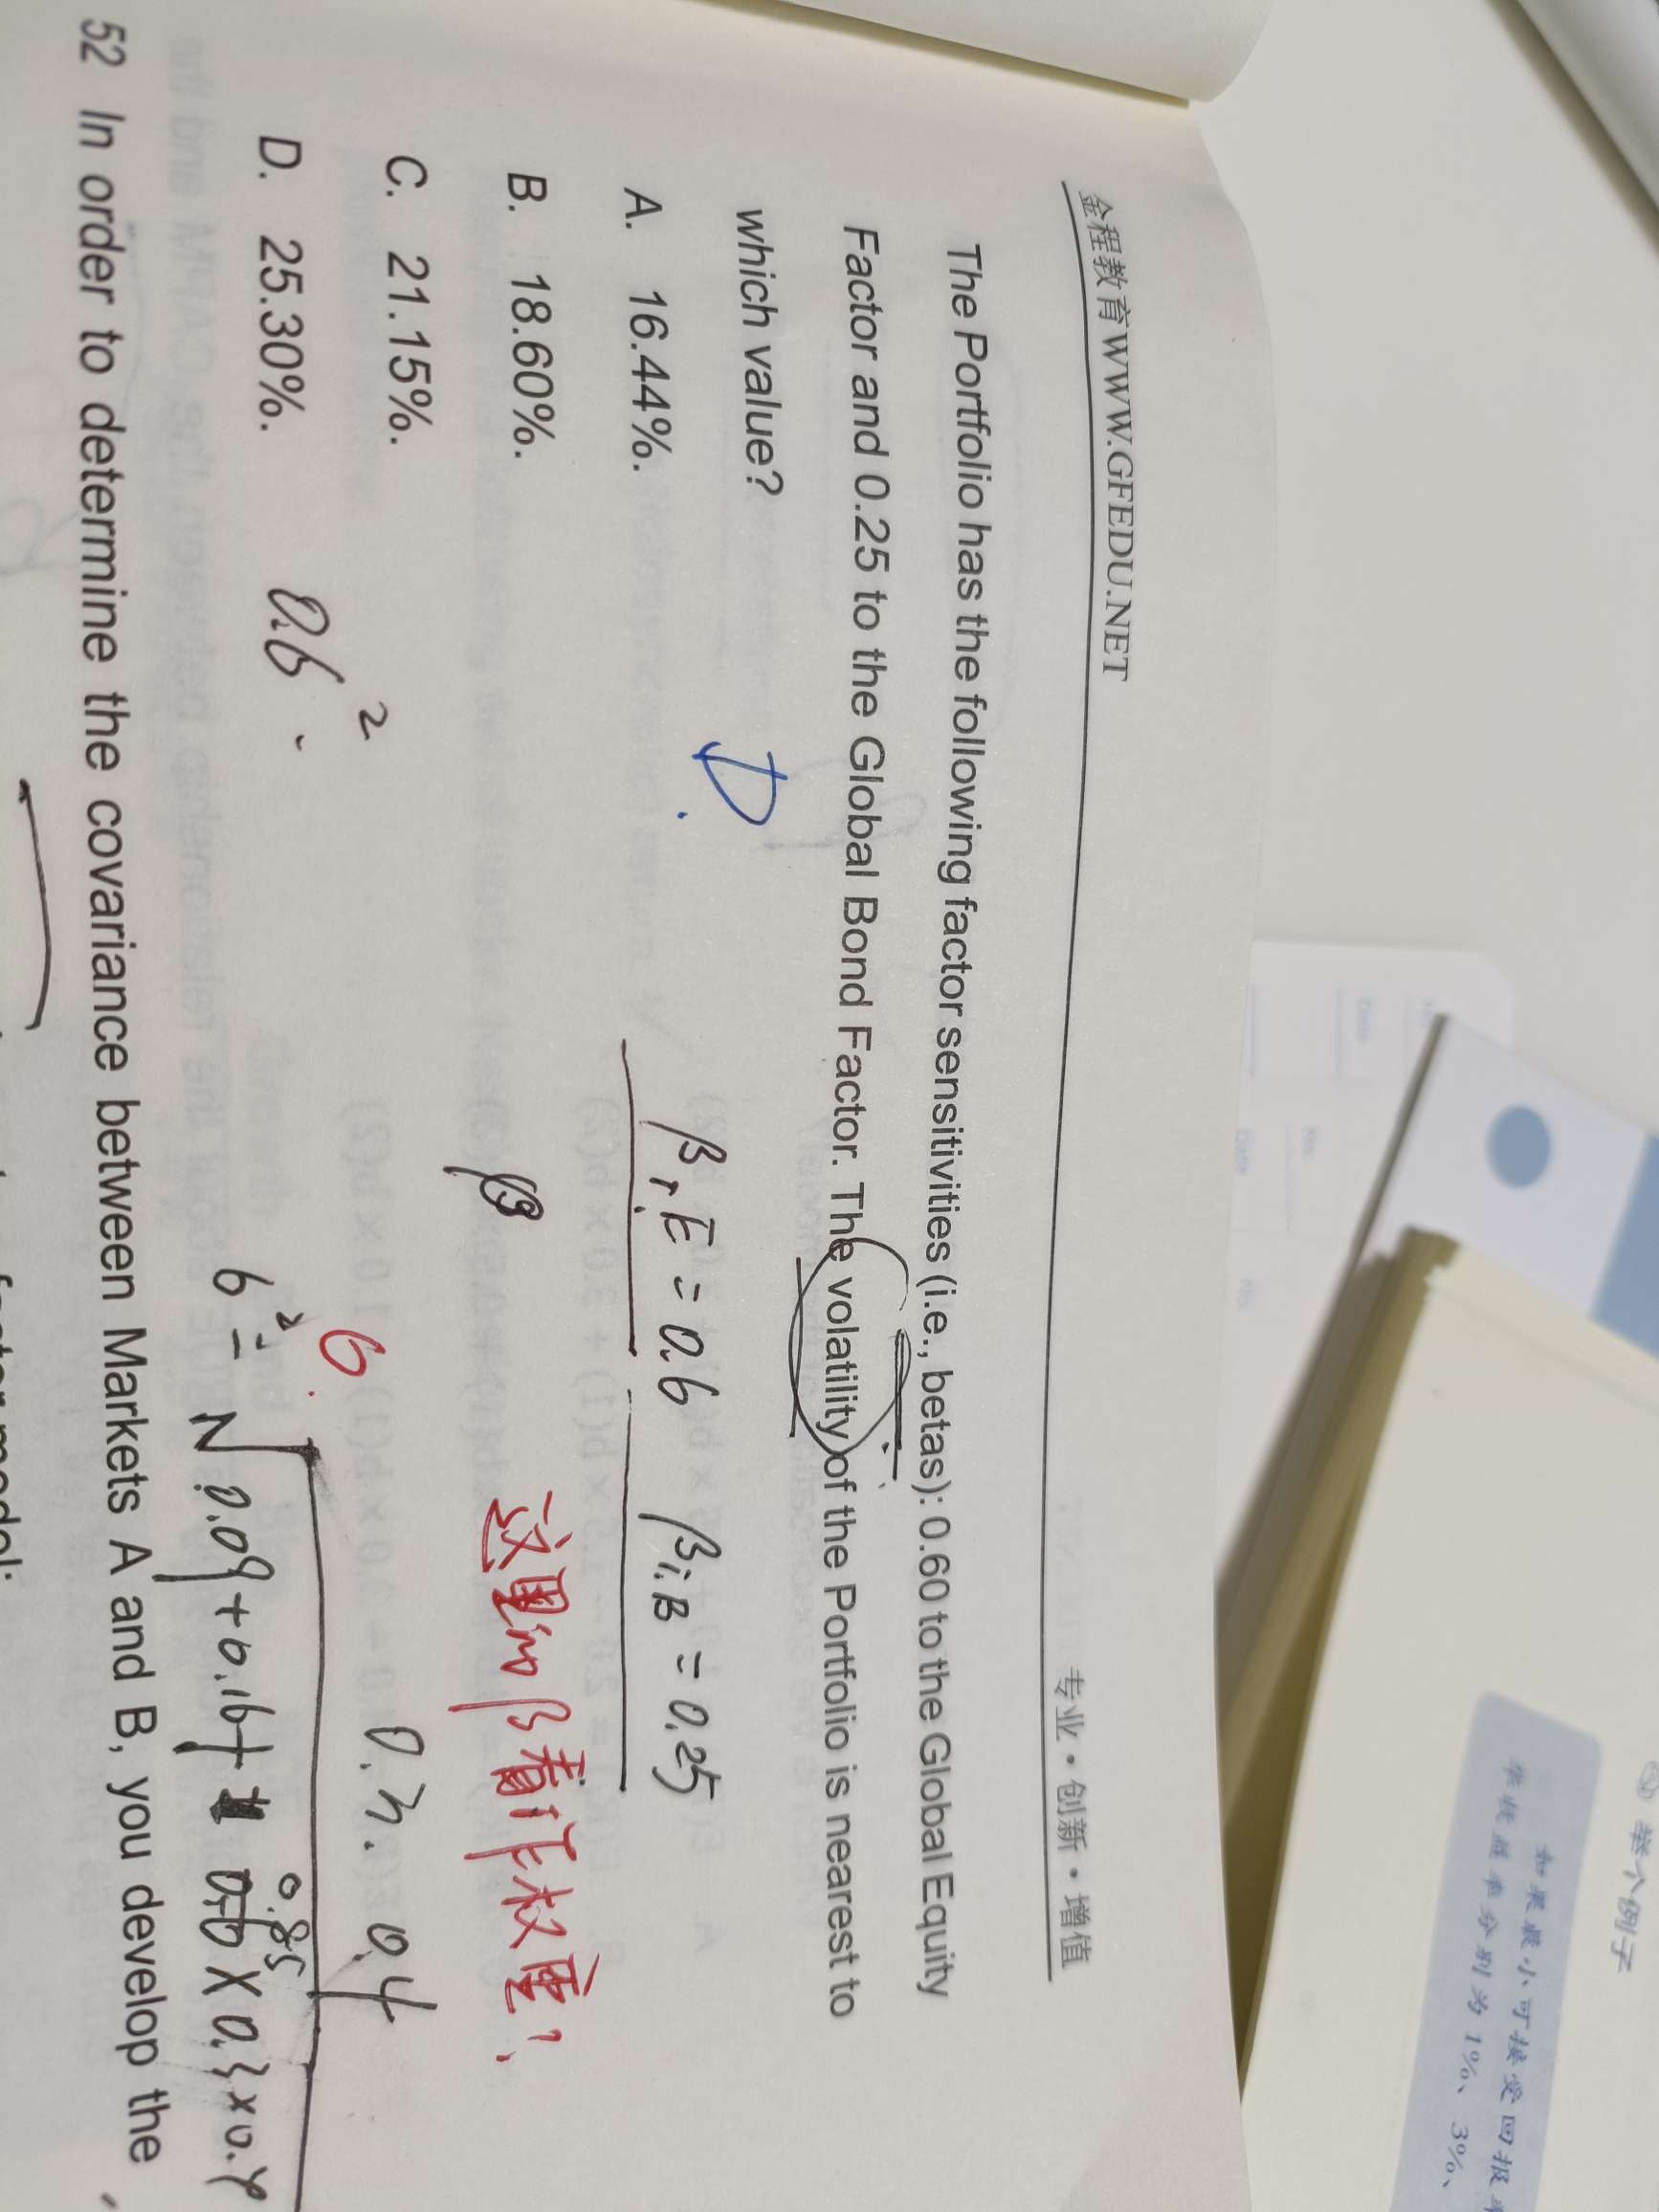 金程教育WWW.GFEDU.NET 专业·创新·增值
The Portfolio has the following factor sensitivities (i.e., betas): 0.60 to the Global Equity
Factor and 0.25 to the Global Bond Factor. The volatility of the Portfolio is nearest to
which value?
D.
A. 16.44%.
β,E = 0.6 βiB = 0.25
B. 18.60%.
β
这里的β看作权重?
C. 21.15%.
0.3. 0.4
D. 25.30%.
0.6²
6
6²= √0.09+0.16+ 0.85 × 0.3×0.4
52 In order to determine the covariance between Markets A and B, you develop the
举个例子
如果最小可接受回报率
年收益率分别为1%、3%、